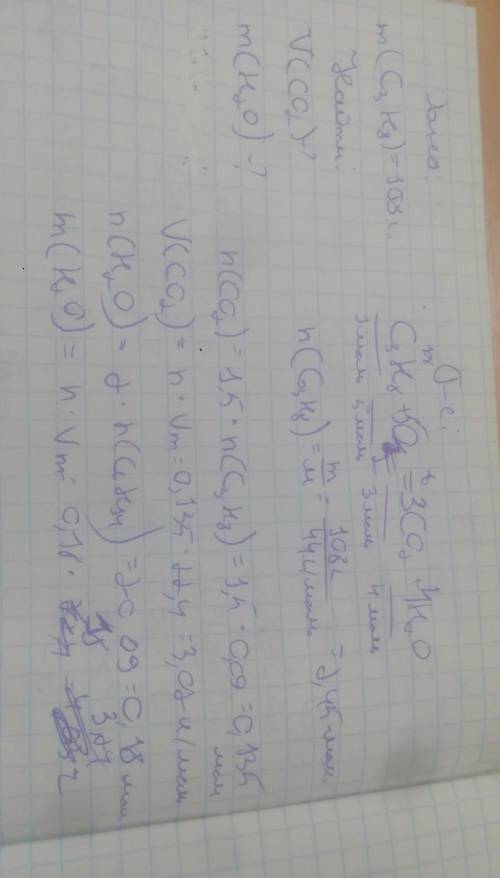 Дано:
m(C3H8)=108г.
Найти:
V(CO2)-?
m(H2O)-?
P-е:
C3H8 + 5O2 = 3CO2 + 4H2O
1 моль 5 моль 3 моль 4 моль
n(C3H8) = m/M = 108г/44г/моль = 2,45 моль
n(CO2) = 1,5 · n(C3H8) = 1,5 · 0,09 = 0,135 моль
V(CO2) = n · Vm = 0,135 · 22,4 = 3,02 л/моль
n(H2O) = 2 · n( ) = 2 · 0,09 = 0,18 моль
m(H2O) = n · Vm = 0,18 · 18 = 3,24 г